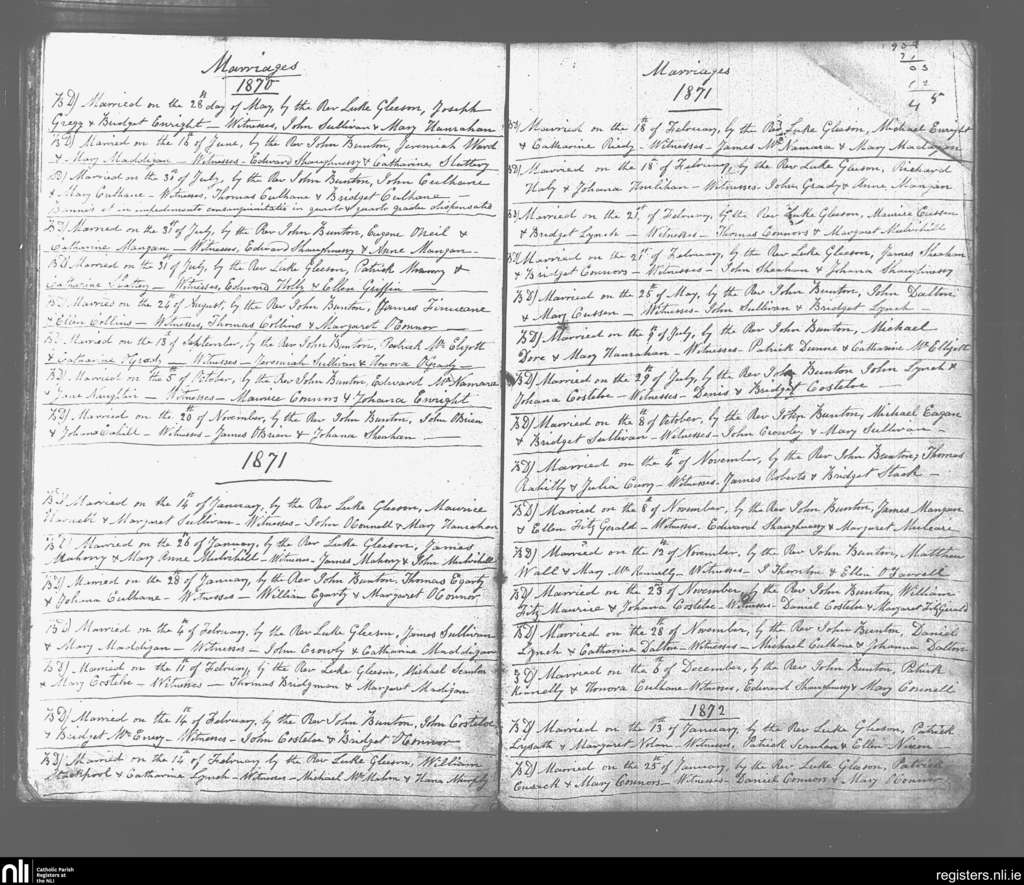 Marriages
1870
BD) Married on the 28th day of May, by the Rev Luke Gleeson, Joseph
Gregg & Bridget Enright — Witnesses, John Sullivan & Mary Hanrahan
BD) Married on the 16 of June, by the Rev John Bunton, Jeremiah Ward
& Mary Maddigan — Witnesses — Edward Shaughnessy & Catharine Slattery
BD) Married on the 3d of July, by the Rev John Bunton, John Culhane
& Mary Culhane — Witnesses, Thomas Culhane & Bridget Culhane
Bannis et in impedimento consanguinitatis in quarto & quarto gradu dispensatis
BD) Married on the 31 of July, by the Rev John Bunton, Eugene O'Neil &
Catharine Mangan — Witnesses, Edward Shaughnessy & Anne Mangan —
BD) Married on the 31st of July, by the Rev Luke Gleeson, Patrick &
Catharine Slattery — Witnesses, Edmund Holy & Ellen Griffin —
BD) Married on the 24th of August, by the Rev John Bunton, James Finucane
& Ellen Collins — Witnesses, Thomas Collins & Margaret O'Connor —
BD) Married on the 13 of September, by the Rev John Bunton, Patrick Mc Elgott
& Catharine O'Grady — Witnesses — Jeremiah Sullivan & Honora O'Grady —
BD) Married on the 5th of October, by the Rev John Bunton, Edward McNamara
& Jane Naughton — Witnesses — Maurice Connors & Johana Enright
BD) Married on the 20th of November, by the Rev John Bunton, John O'Brien
& Johana Cahill — Witnesses — James O'Brien & Johana Sheahan —
1871
BD) Married on the 14th of January, by the Rev Luke Gleeson, Maurice
& Margaret Sullivan — Witnesses — John O'Connell & Mary Hanrahan
BD) Married on the 26th of January, by the Rev Luke Gleeson, James
Mahony & Mary Anne Mulvihill — Witnesses — James Mahony & John Mulvihill
BD) Married on the 28th of January, by the Rev John Bunton, Thomas Egarty
& Johana Culhane — Witnesses — William Egarty & Margaret O'Connor
BD) Married on the 4th of February, by the Rev Luke Gleeson, James Sullivan
& Mary Maddigan — Witnesses — John Crowly & Catharine Maddigan
BD) Married on the 11th of February, by the Rev Luke Gleeson, Michael Scanlan
& Mary Costeloe — Witnesses — Thomas Bridgman & Margaret Madigan
BD) Married on the 14th of February, by the Rev John Bunton, John Costeloe
& Bridget McEniry — Witnesses — John Costeloe & Bridget O'Connor
BD) Married on the 14th of February by the Rev Luke Gleeson, William
Stackpool & Catharine Lynch — Witnesses — Michael McMahon & Hana Murphy
Marriages
1871
BD) Married on the 18th of February, by the Rev Luke Gleeson, Michael Enright
& Catharine Reidy — Witnesses — James McNamara & Mary Madigan
BD) Married on the 18th of February, by the Rev Luke Gleeson, Richard
Holy & Johana Houlihan — Witnesses — John Grady & Anne Mangan
BD) Married on the 21st of February, by the Rev Luke Gleeson, Maurice Cussen
& Bridget Lynch — Witnesses — Thomas Connors & Margaret Mulvihill
BD) Married on the 21st of February, by the Rev Luke Gleeson, James Sheahan
& Bridget Connors — Witnesses — John Sheahan & Johana Shaughnessy
BD) Married on the 25th of May, by the Rev John Bunton, John Dalton
& Mary Cussen — Witnesses — John Sullivan & Bridget Lynch —
BD) Married on the 9th of July, by the Rev John Bunton, Michael
Dore & Mary Hanrahan — Witnesses — Patrick Dunne & Catharine McElligott
BD) Married on the 29th of July, by the Rev John Bunton John Lynch &
Johana Costeloe — Witnesses — Denis & Bridget Costeloe —
BD) Married on the 8th of October, by the Rev John Bunton, Michael Eagan
& Bridget Sullivan — Witnesses — John Crowley & Mary Sullivan —
BD) Married on the 4th of November, by the Rev John Bunton, Thomas
Rahilly & Julia Cury — Witnesses — James Roberts & Bridget Stack —
BD) Married on the 8th of November, by the Rev John Bunton, James Mangan
& Ellen FitzGerald — Witnesses, Edward Shaughnessy & Margaret Mulcare
BD) Married on the 12th of November, by the Rev John Bunton, Matthew
Wall & Mary McKennelly — Witnesses — J Thornton & Ellen O'Farrell
BD) Married on the 23d of November by the Rev John Bunton, William
FitzMaurice & Johana Costeloe — Witnesses — Daniel Costeloe & Margaret FitzGerald
BD) Married on the 28th of November, by the Rev John Bunton, Daniel
Lynch & Catharine Dalton — Witnesses — Michael Culhane & Johanna Dalton
BD) Married on the 3d of December, by the Rev John Bunton, Patrick
Kennelly & Honora Culhane Witnesses, Edward Shaughnessy & Mary Connell
1872
BD) Married on the 13th of January, by the Rev Luke Gleeson, Patrick
Lysaght & Margaret Nolan — Witnesses, Patrick Scanlan & Ellen Nixon —
BD) Married on the 25th of January, by the Rev Luke Gleeson, Patrick
Cusack & Mary Connors — Witnesses — Daniel Connors & Mary O'Connor
nli
Catholic Parish
Registers at
the NLI
registers.nli.ie